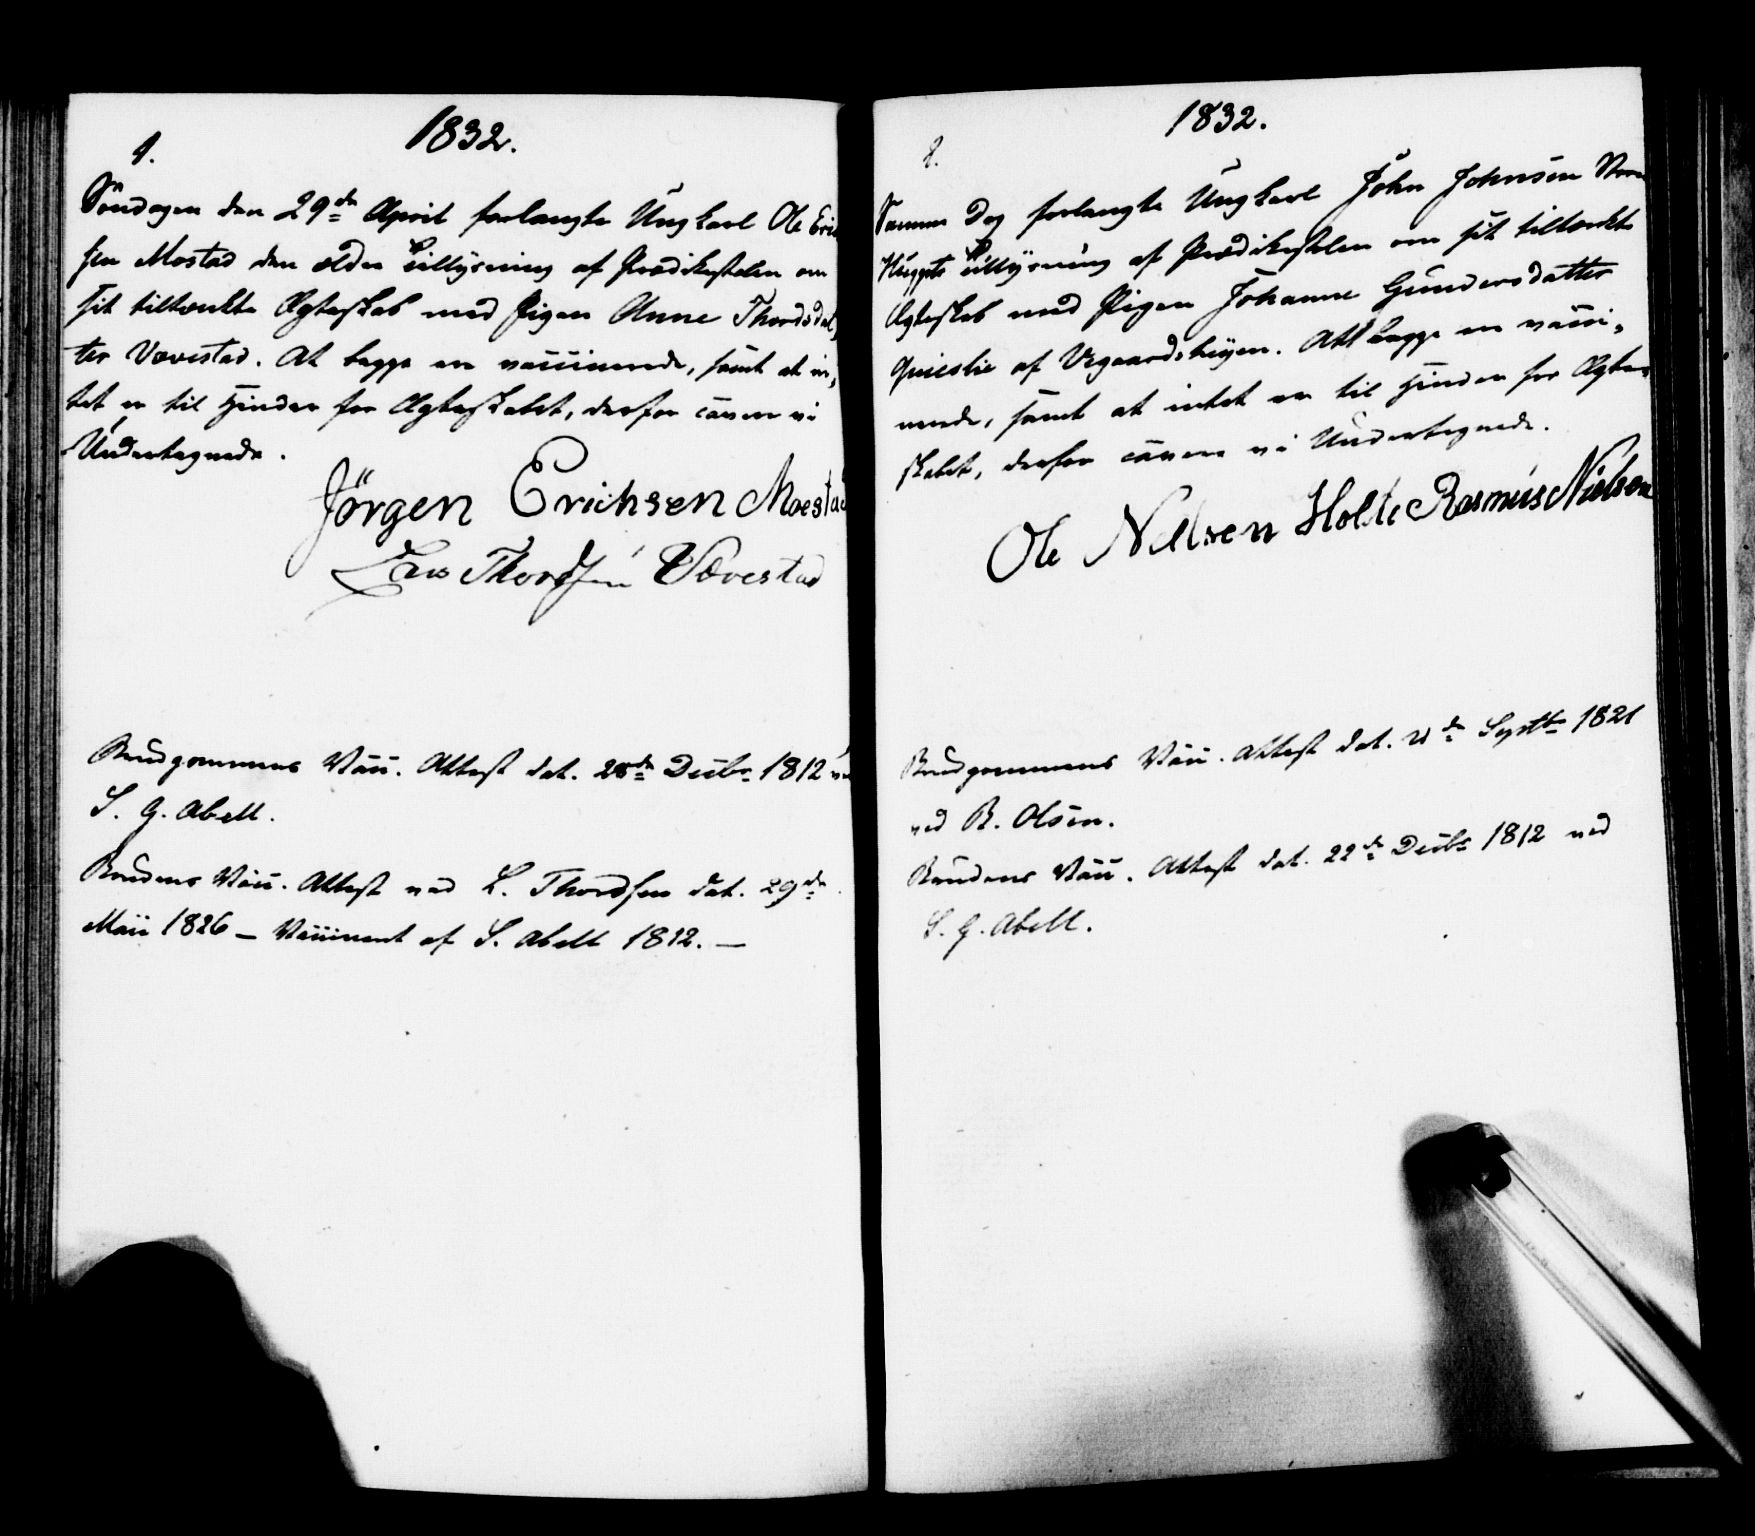 1832.
1.
Søndagen den 29de April forlangte Ungkarl Ole Eric
sen Mostad den ældre Lilliysning af Prædikestolen om
sit tiltænkte Ægteskab med Pigen Anne Thordsdat,
ter Vævestad. At begge ere vaccinerede, samt at in,
tet er til Hinder for Ægteskabet, derfor cavere vi
Undertegnede.
Jörgen Erichsen Moestad
Lars Thordsen Vævestad
Brudgommens Vacc. Attest dat. 28de Decbr. 1812 ved
S. G. Abell.
Brudens Vacc. Attest ved L. Thordsen dat. 29de
Maii 1826 – Vaccineret af S. Abell 1812. –
1832.
2.
Samme Dag forlangte Ungkarl John Johnsen
Lilliysning af Prædikestolen om sit tiltænkte
Ægteskab med Pigen Johanne Gundersdatter
af Vegaardsheyen. Att begge ere vacci,
nerede, samt at intet er til Hinder for Ægte,
skabet, derfor cavere vi Undertegnede.
Ole Nilsen Holte Rasmus Nielsen
Brudgommens Vacc. Attest dat. 21de Septbr 1821
ved B. Olsen.
Brudens Vacc. Attest dat. 22de Decbr 1812 ved
S. G. Abell.